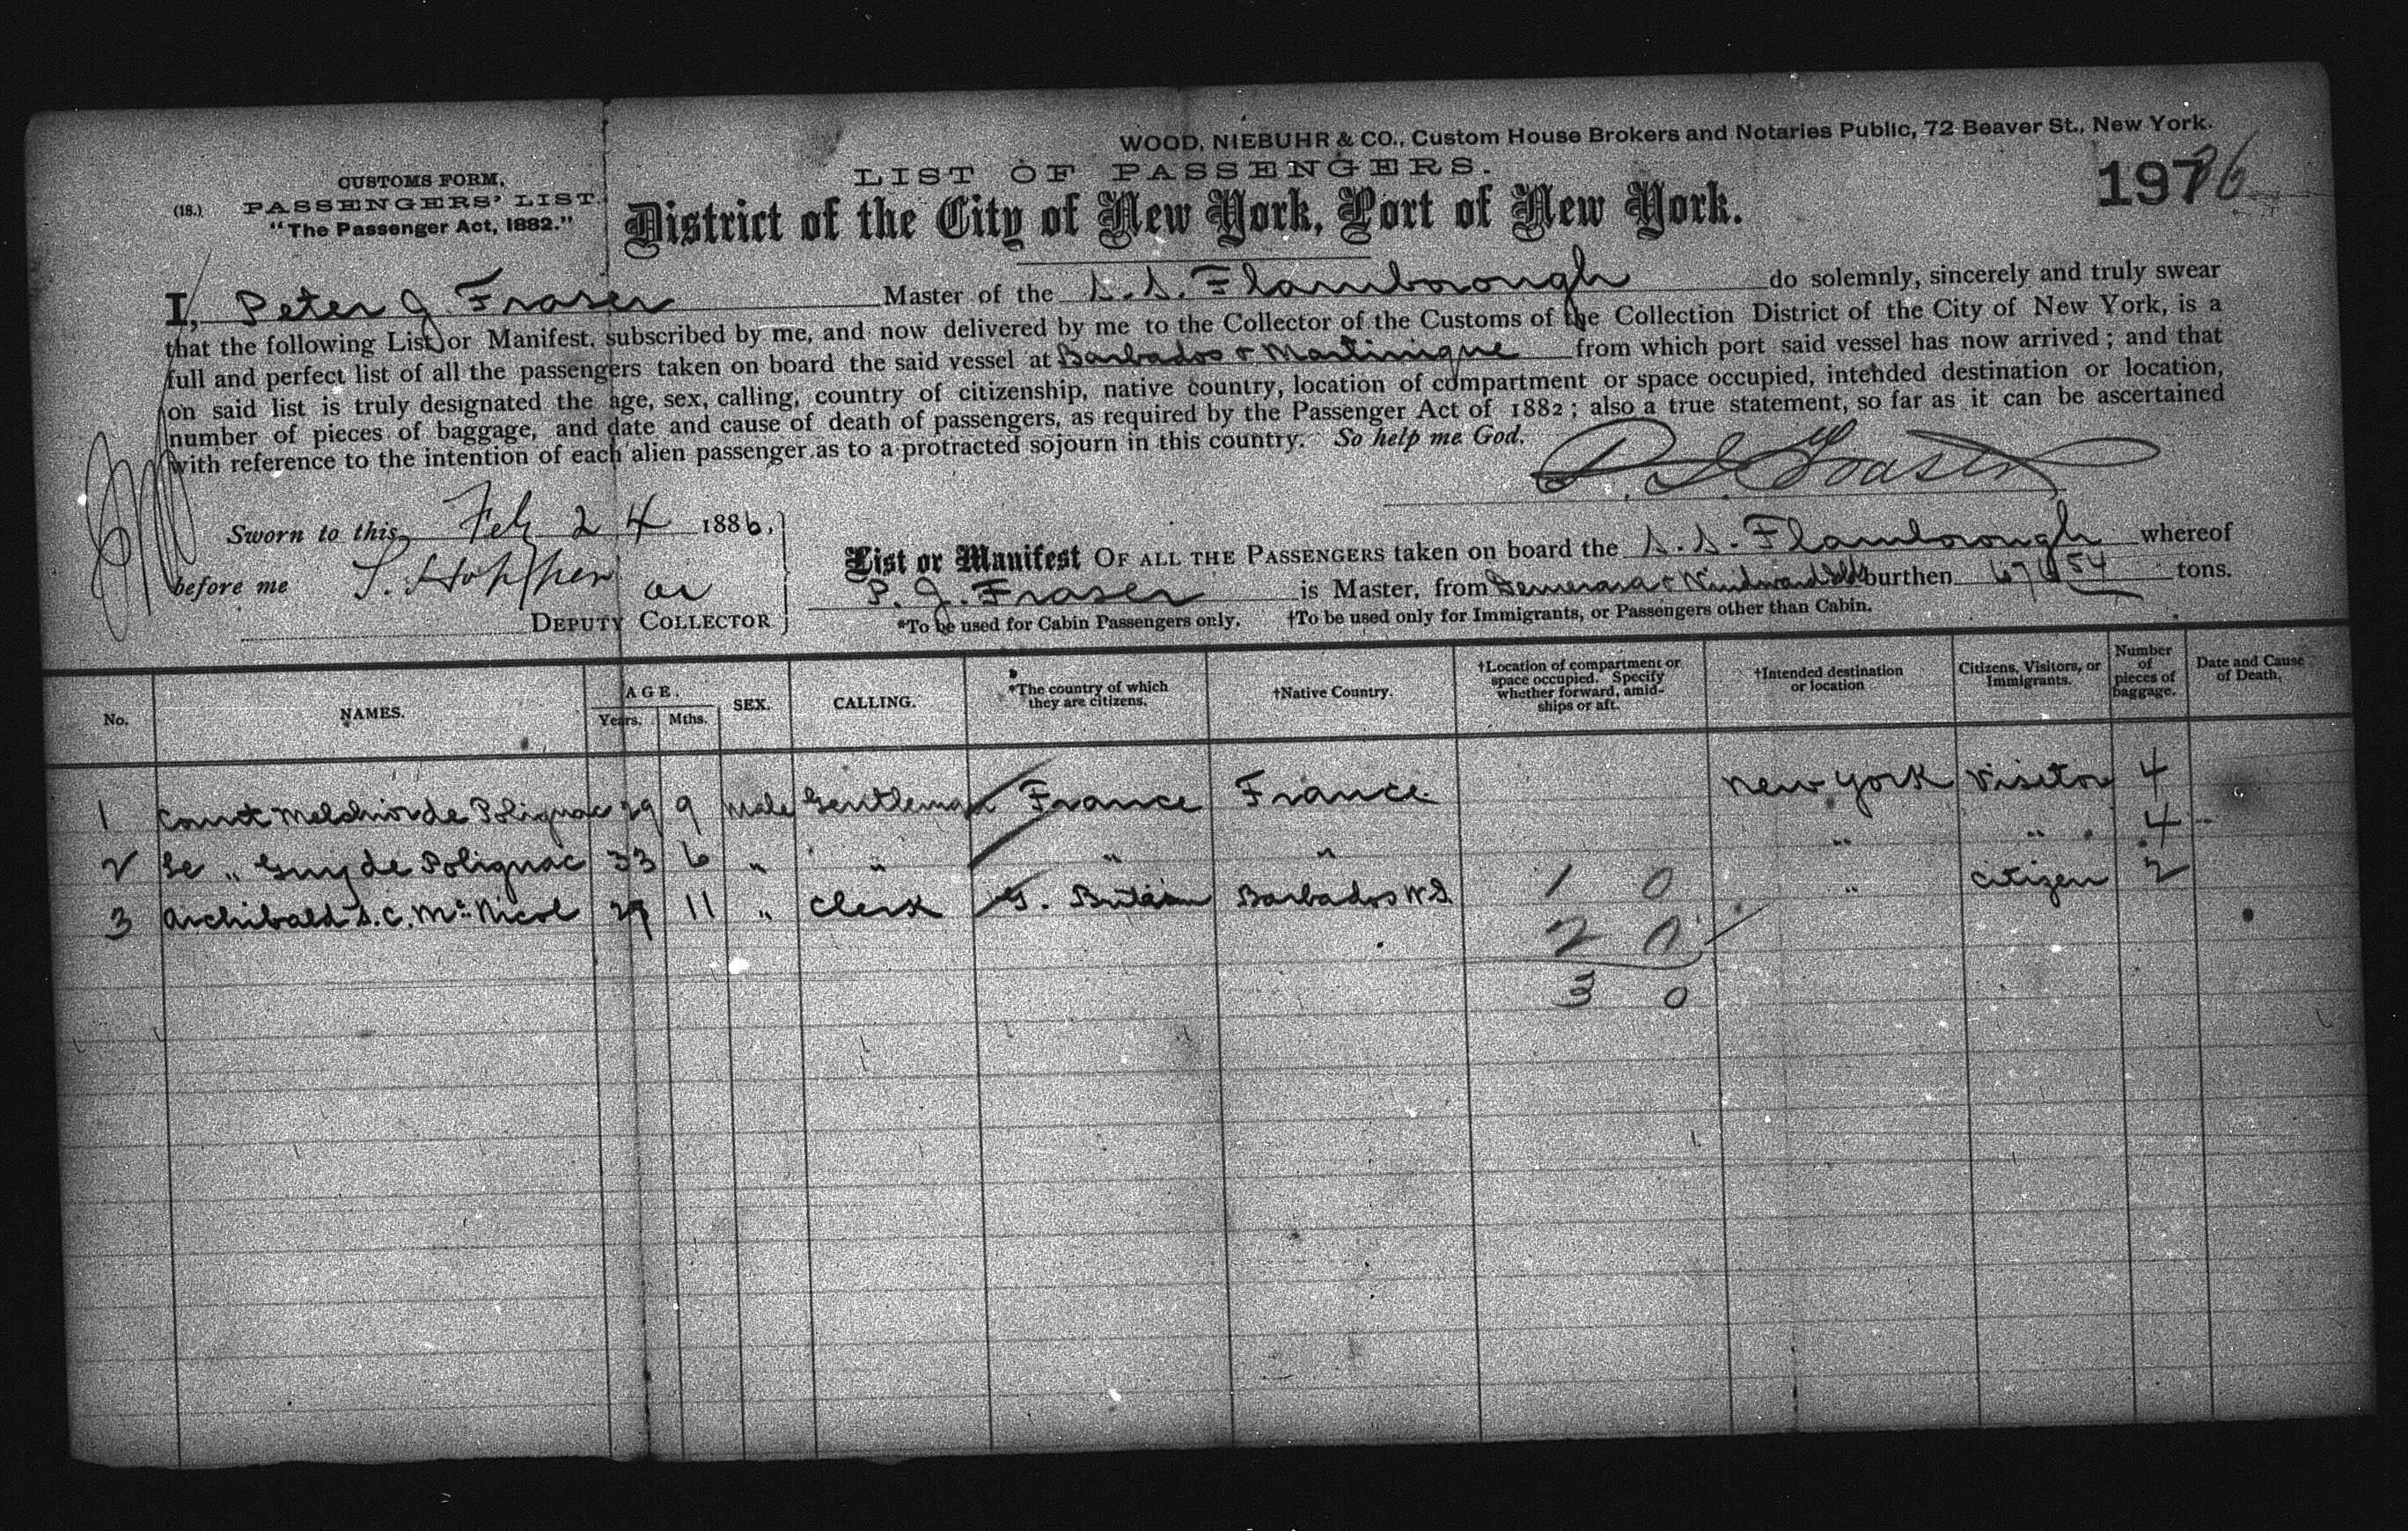 WOOD, NIEBUHR & CO., Custom House Brokers and Notaries Public, 72 Beaver St., New York.
(18.) CUSTOMS FORM,
PASSENGERS' LIST.
"The Passenger Act, 1882."
LIST OF PASSENGERS.
District of the City of New York, Port of New York.
197
I, Peter J Fraser Master of the S.S. Flamborough do solemnly, sincerely and truly swear
that the following List or Manifest. subscribed by me, and now delivered by me to the Collector of the Customs of the Collection District of the City of New York, is a
full and perfect list of all the passengers taken on board the said vessel at Barbados & Martinique from which port said vessel has now arrived; and that
on said list is truly designated the age, sex, calling, country of citizenship, native country, location of compartment or space occupied, intended destination or location,
number of pieces of baggage, and date and cause of death of passengers, as required by the Passenger Act of 1882; also a true statement, so far as it can be ascertained
with reference to the intention of each alien passenger as to a protracted sojourn in this country. So help me God.
P. J. Fraser
Sworn to this Feb 24 1886.
before me
DEPUTY COLLECTOR
List or Manifest OF ALL THE PASSENGERS taken on board the S.S. Flamborough whereof
P. J. Fraser is Master, from Demerara & Windward Isds burthen tons.
*To be used for Cabin Passengers only. †To be used only for Immigrants, or Passengers other than Cabin.
No. NAMES. AGE. Years. Mths. SEX. CALLING. *The country of which they are citizens. †Native Country. †Location of compartment or space occupied. Specify whether forward, amidships or aft. †Intended destination or location Citizens, Visitors, or Immigrants. Number of pieces of baggage. Date and Cause of Death.
1 Count Melchior de Polignac 29 9 Male Gentleman France France New York Visitor 4
2 Le " Guy de Polignac 33 6 " " " " " " 4
3 Archibald S. C. McNicol 29 11 " Clerk G. Britain Barbados W.I. " Citizen 2
1 0
2 0
3 0